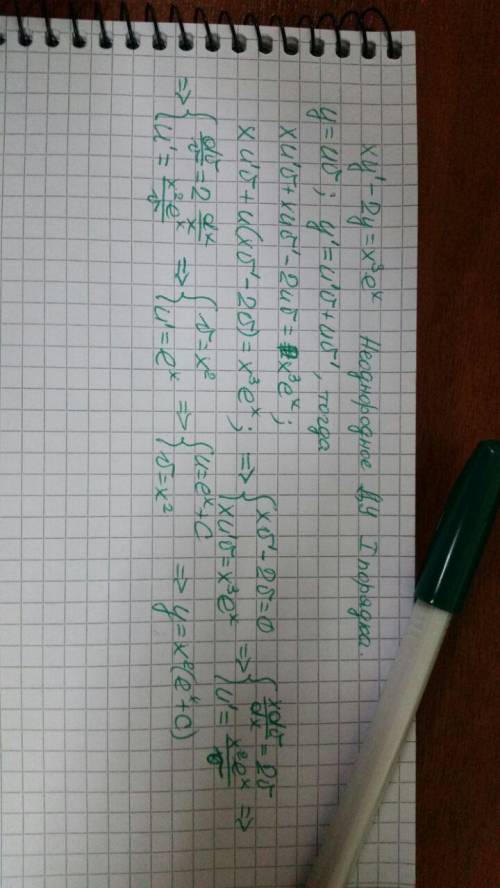 xy' - 2y = x³eˣ Неоднородное ДУ I порядка.
y = uv; y' = u'v + uv', тогда
xu'v + xuv' - 2uv = x³eˣ;
xu'v + u(xv' - 2v) = x³eˣ; ⇒ { xv' - 2v = 0 ; xu'v = x³eˣ ⇒ { xdv/dx = 2v ; u' = x²eˣ/v ⇒
⇒ { dv/v = 2 dx/x ; u' = x²eˣ/v ⇒ { v = x² ; u' = eˣ ⇒ { u = eˣ + C ; v = x² ⇒ y = x²(eˣ + C)